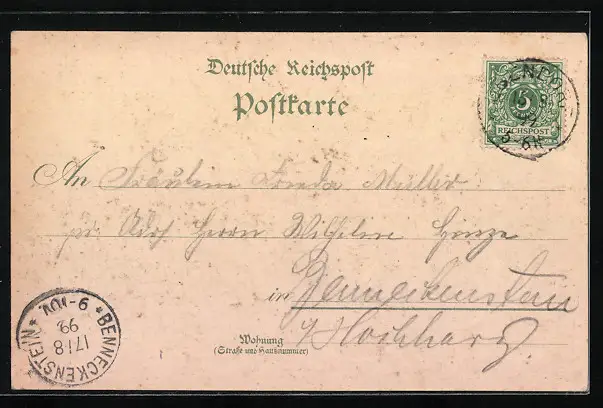 Deutsche Reichspost
Postkarte
5
REICHSPOST
An Fräulein Frieda Müller
p. Adr. Herrn Wilhelm Hinze
in Benneckenstein
i/ Hochharz
Wohnung
(Straße und Hausnummer)
* BENNECKENSTEIN *
17/8
99
9-10V.